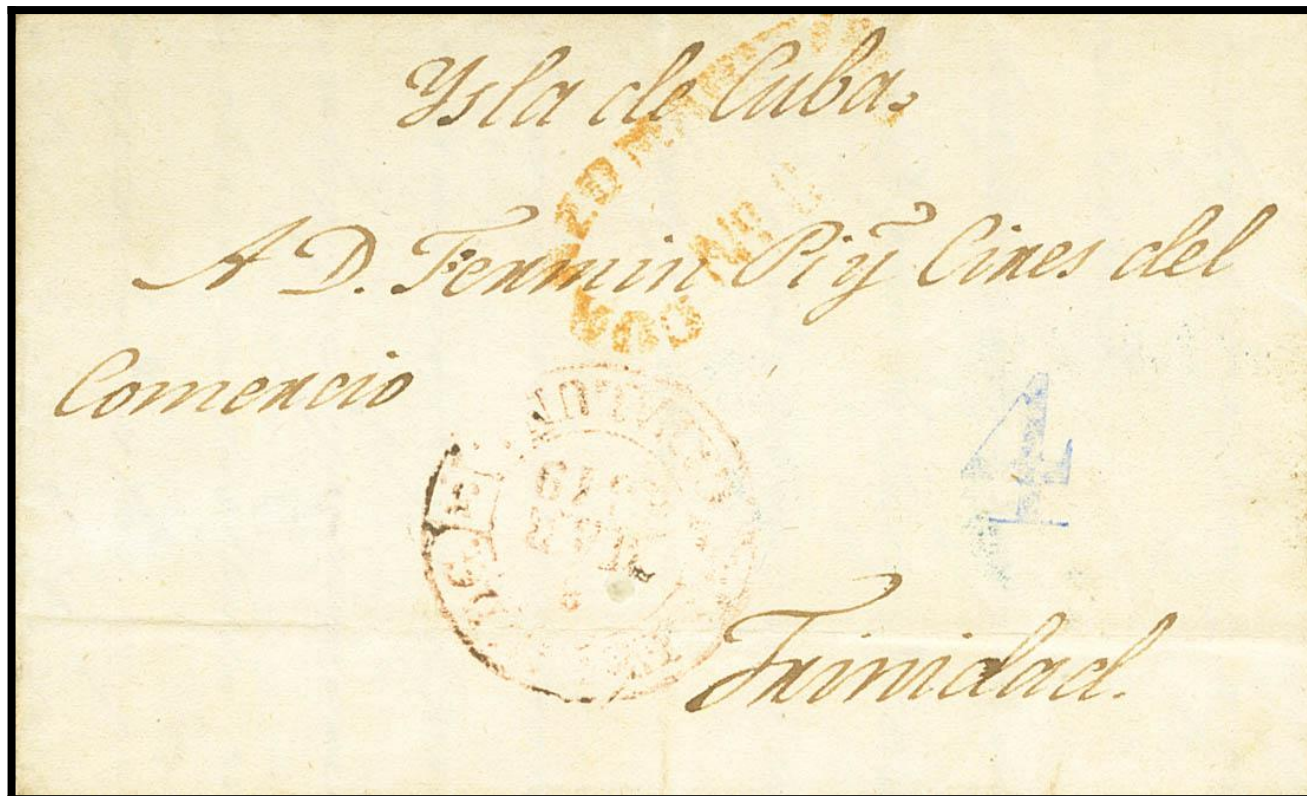 Ysla de Cuba.
A D. Fermin Pi y Cires del
Comercio
4
Trinidad.